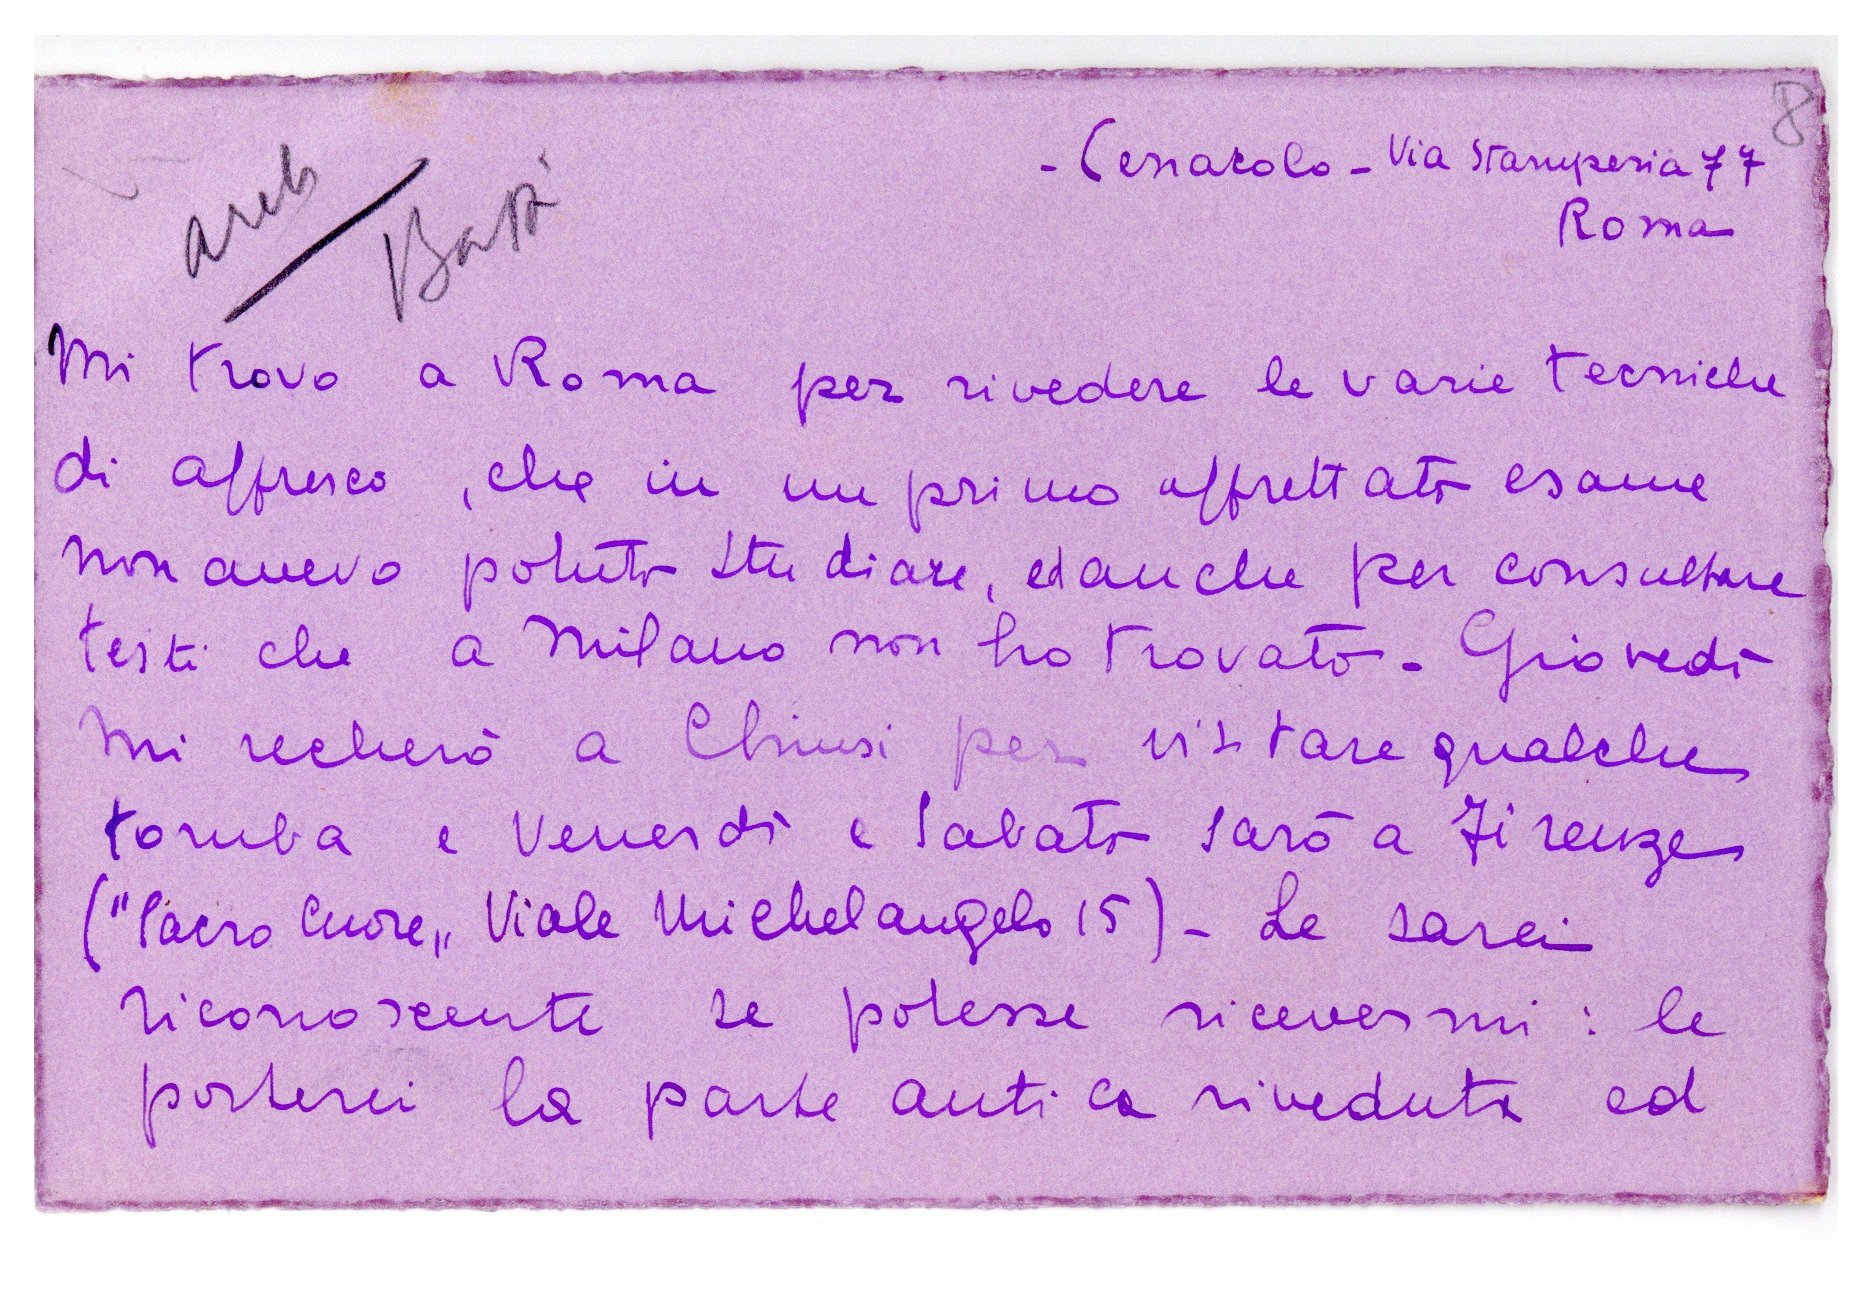 8
- Cenacolo - Via Stamperia 77
Roma
Mi trovo a Roma per rivedere le varie tecniche
di affresco, che in un primo affrettato esame
non avevo potuto studiare, ed anche per consultare
testi che a Milano non ho trovato. Giovedì
mi recherò a Chiusi per visitare qualche
tomba e Venerdì e Sabato sarò a Firenze
("Sacro Cuore„ Viale Michelangelo 15) - Le sarei
riconoscente se potesse ricevermi: le
porterei la parte antica riveduta ed